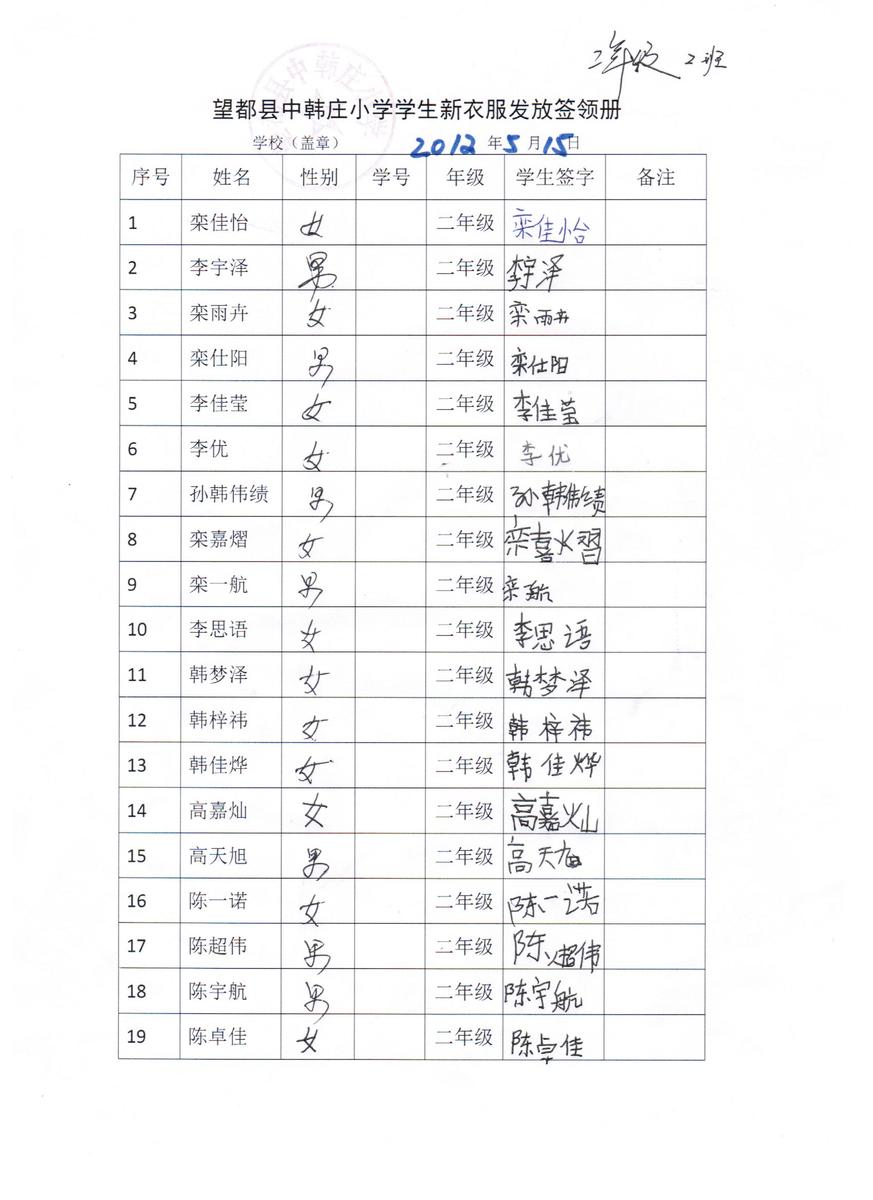 二年级 2班
望都县中韩庄小学学生新衣服发放签领册
学校（盖章） 2012 年 5 月 15 日
序号 姓名 性别 学号 年级 学生签字 备注
1 栾佳怡 女 二年级 栾佳怡
2 李宇泽 男 二年级 李宇泽
3 栾雨卉 女 二年级 栾雨卉
4 栾仕阳 男 二年级 栾仕阳
5 李佳莹 女 二年级 李佳莹
6 李优 女 二年级 李优
7 孙韩伟绩 男 二年级 孙韩伟绩
8 栾嘉熠 女 二年级 栾嘉熠
9 栾一航 男 二年级 栾航
10 李思语 女 二年级 李思语
11 韩梦泽 女 二年级 韩梦泽
12 韩梓祎 女 二年级 韩梓祎
13 韩佳烨 女 二年级 韩佳烨
14 高嘉灿 女 二年级 高嘉灿
15 高天旭 男 二年级 高天旭
16 陈一诺 女 二年级 陈一诺
17 陈超伟 男 二年级 陈超伟
18 陈宇航 男 二年级 陈宇航
19 陈卓佳 女 二年级 陈卓佳